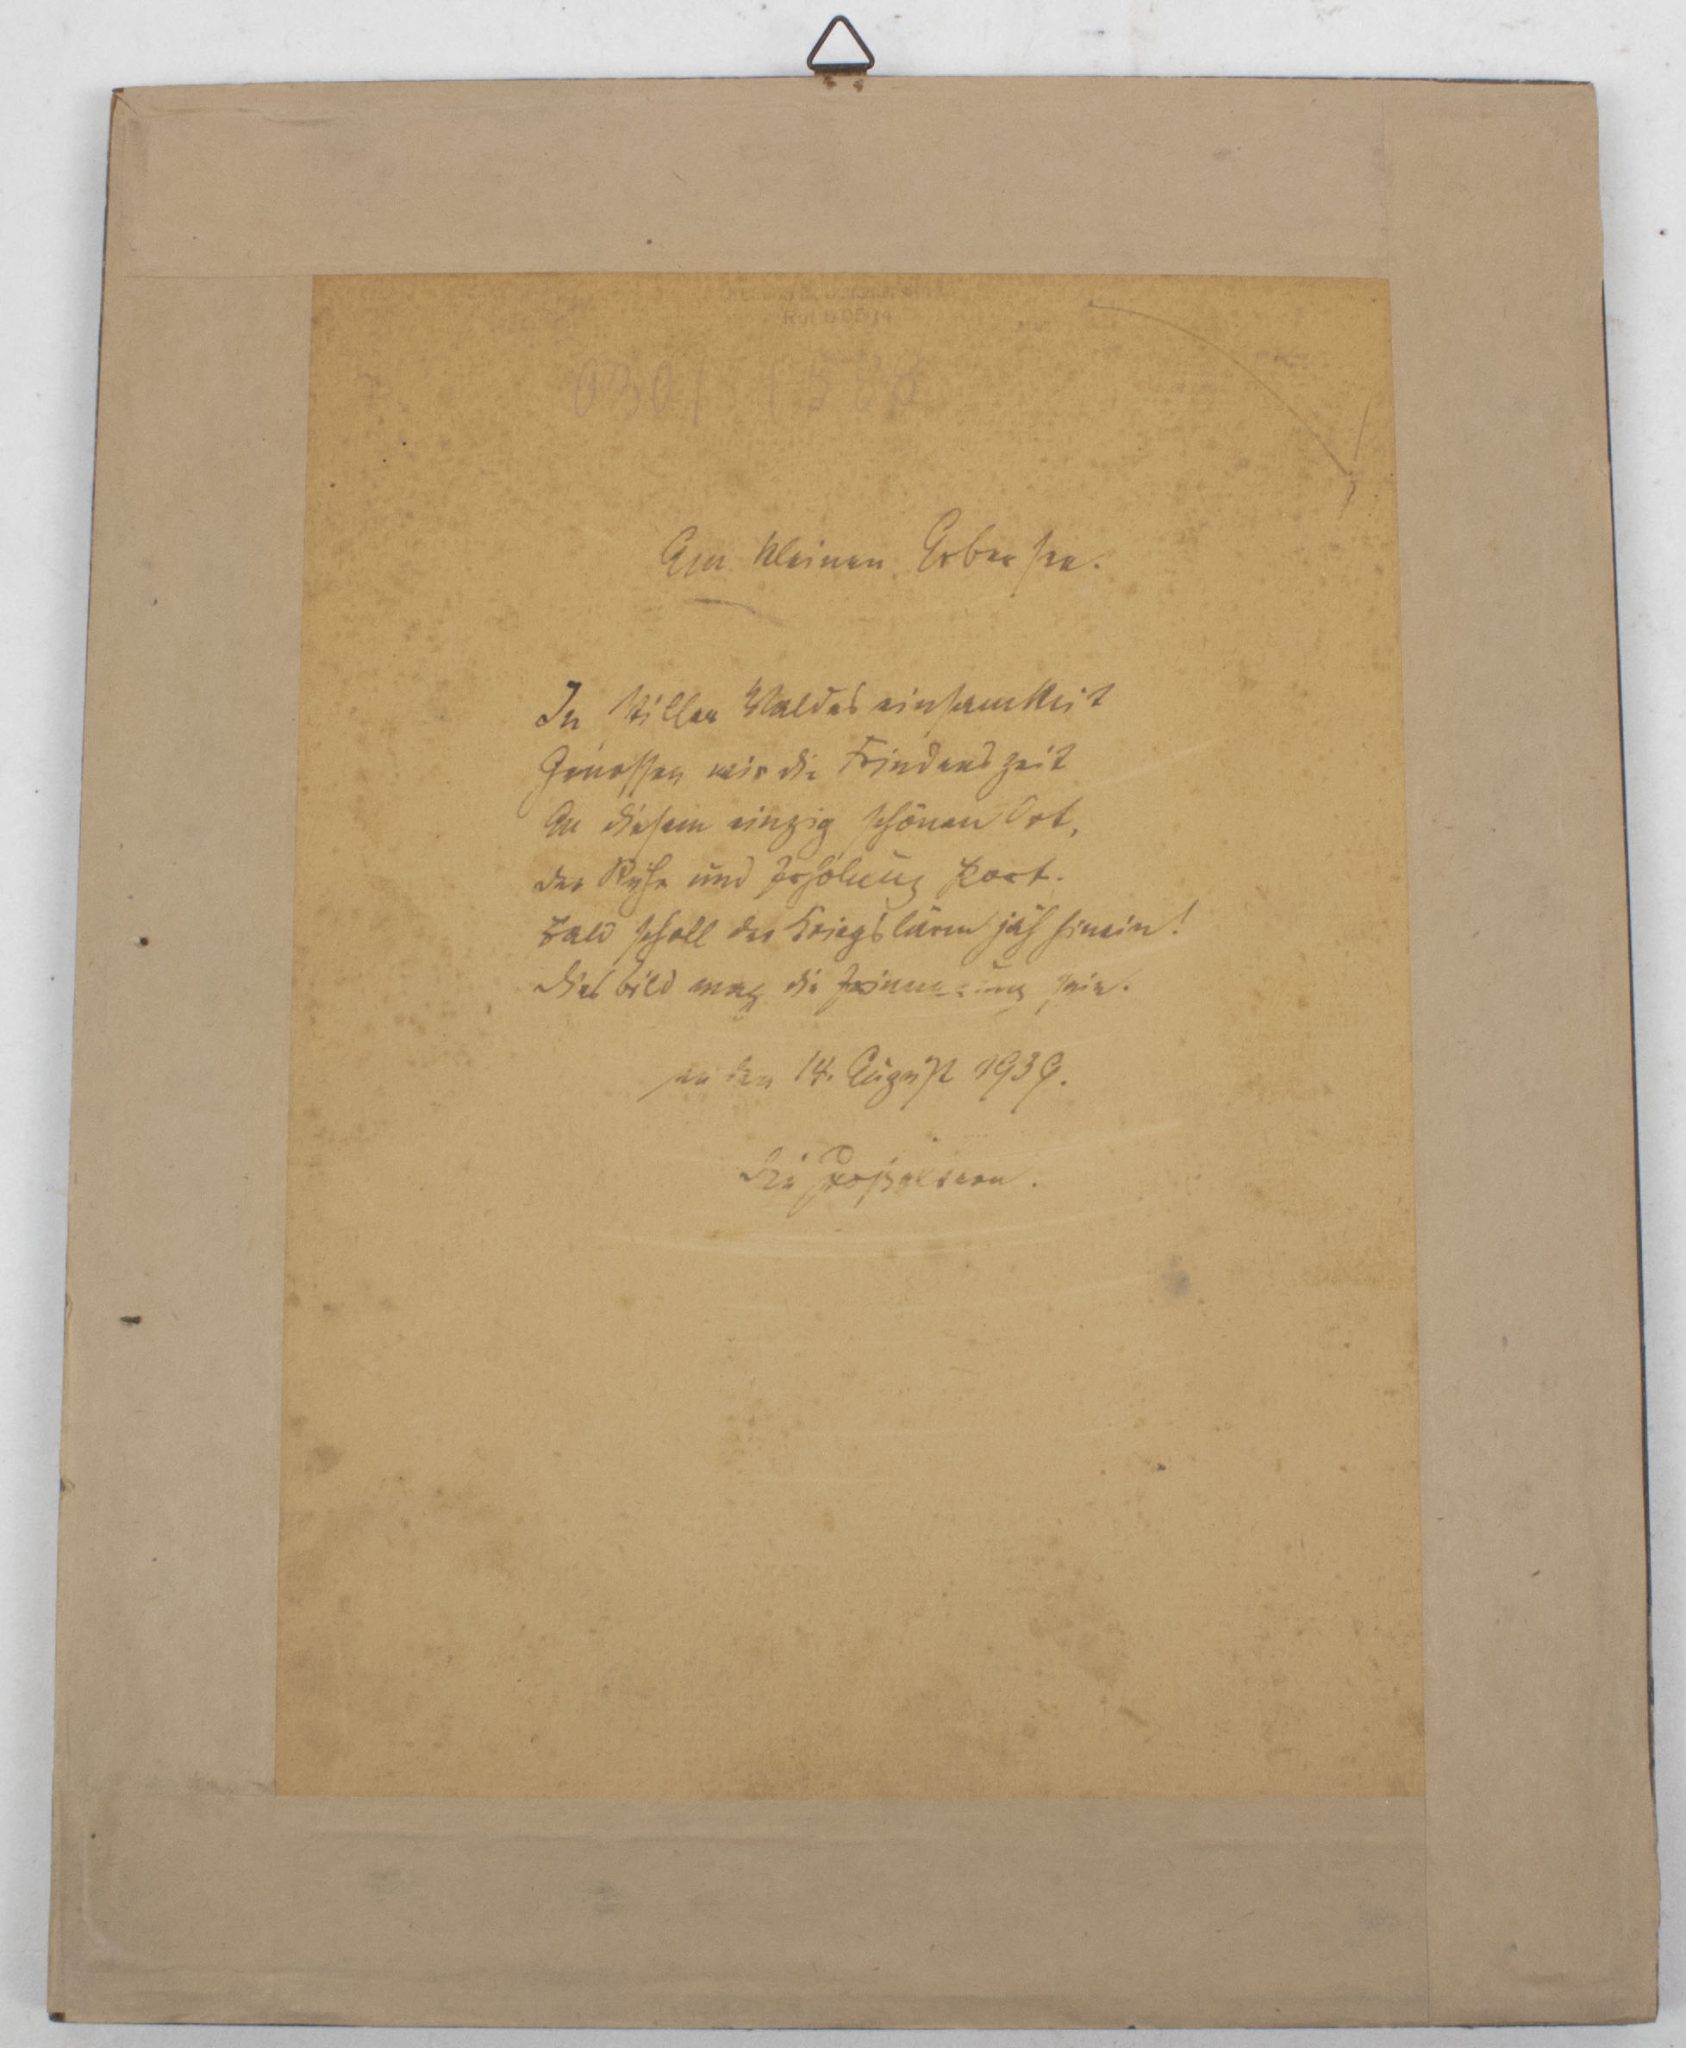 0301 1588
Am kleinen Arbersee.
In stiller Waldeseinsamkeit
Genossen wir die Friedenszeit
An diesem einzig schönen Ort,
der Ruhe und Erholung Hort.
Bald scholl der Kriegslärm jäh hinein!
Dies Bild mag die Erinnerung sein.
14. August 1939.
Die Großeltern.